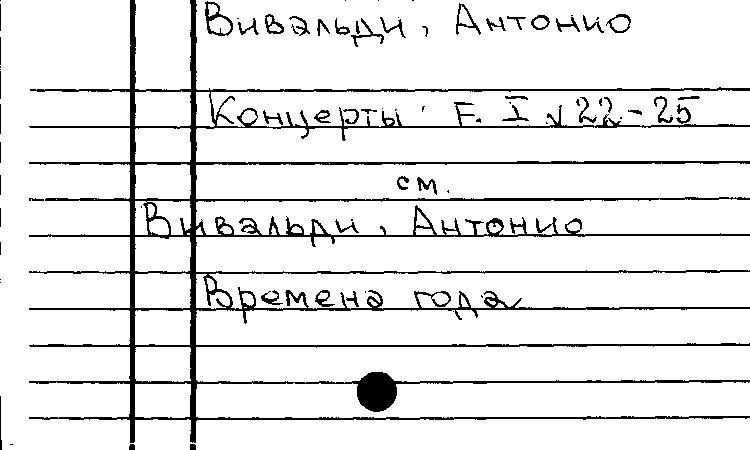 Вивальди, Антонио
Концерты F. I №22-25
см.
Вивальди, Антонио
Времена года